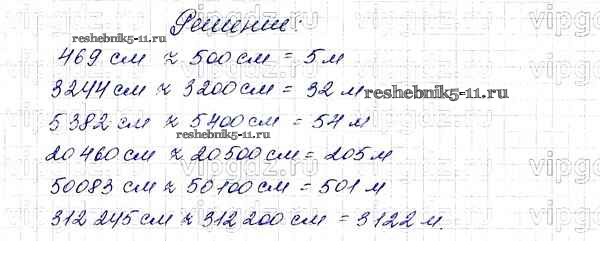 Решение:
reshebnik5-11.ru
469 см ≈ 500 см = 5 м
3244 см ≈ 3200 см = 32 м
reshebnik5-11.ru
5382 см ≈ 5400 см = 54 м
reshebnik5-11.ru
20460 см ≈ 20500 см = 205 м
50083 см ≈ 50100 см = 501 м
312 245 см ≈ 312 200 см = 3122 м.
vipgdz.com